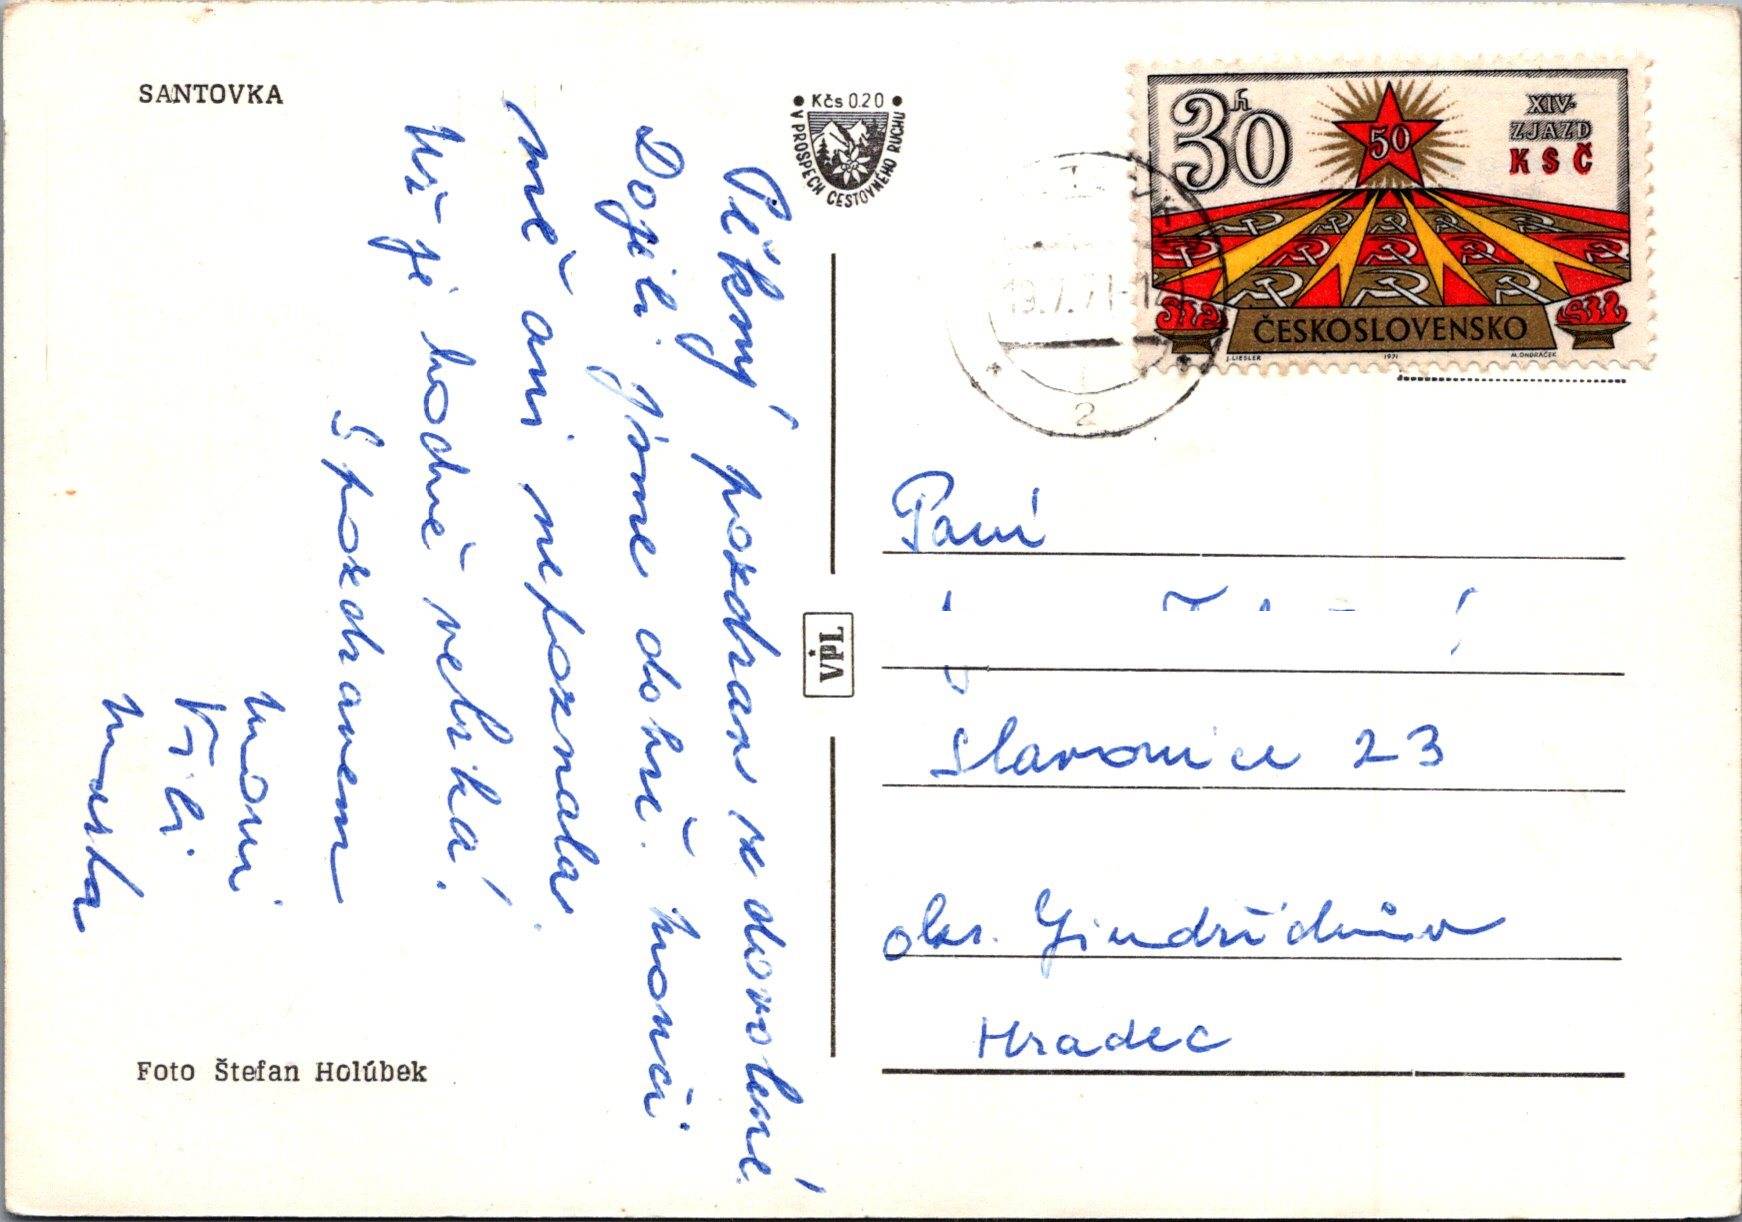 SANTOVKA
Pěkný pozdrav z dovolené.
Dojeli jsme dobře.
mě ani nepoznala.
Už je hodně velká!
S pozdravem
Moni
Vili
Foto Štefan Holúbek
Kčs 0.20
V PROSPECH CESTOVNÉHO RUCHU
VPL
30h
50
XIV.
ZJAZD
KSČ
ČESKOSLOVENSKO
J. LIESLER 1971 M. ONDRÁČEK
19.V.71-1
2
Paní
Slavonice 23
okr. Jindřichův
Hradec